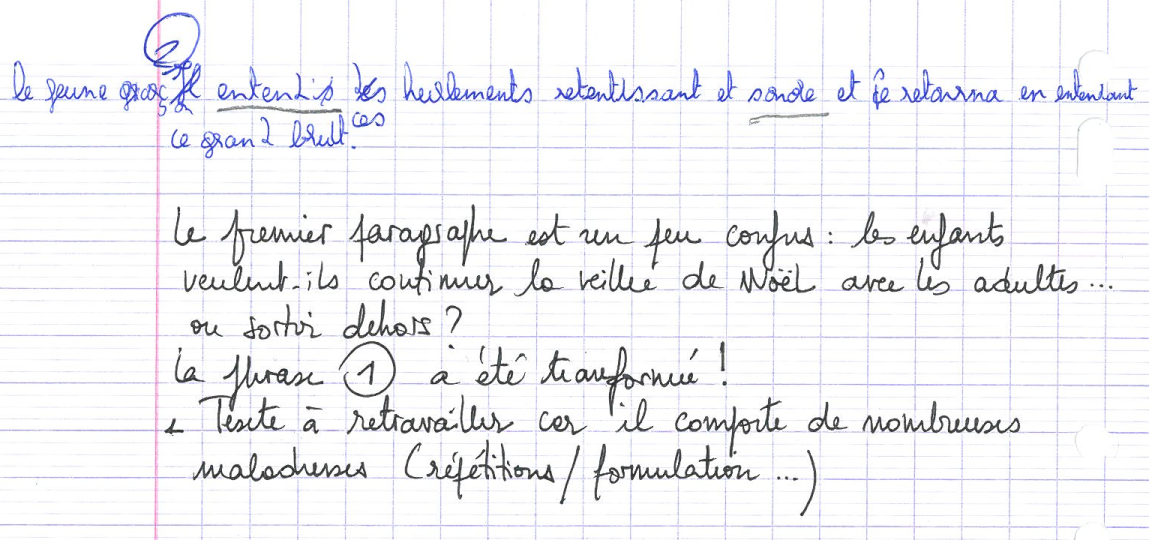 2
le jeune garç Il entendis les heurlements retentissant et sonore et se retourna en entendant
ces
ce grand bruit.
Le premier paragraphe est un peu confus : les enfants
veulent-ils continuer la veillée de Noël avec les adultes...
ou sortir dehors ?
La phrase 1 a été transformée !
Texte à retravailler car il comporte de nombreuses
maladresses (répétitions / formulation ...)